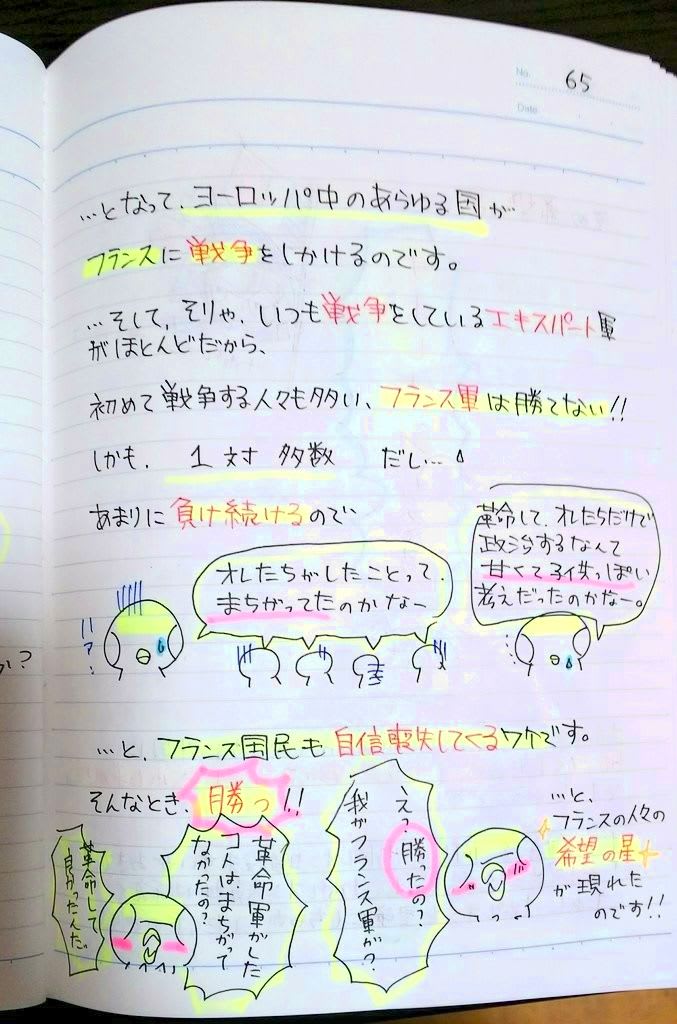 No. 65
Date
…となって、ヨーロッパ中のあらゆる国が
フランスに戦争をしかけるのです。
…そして、そりゃ、いつも戦争をしているエキスパート軍
がほとんどだから、
初めて戦争する人々も多い、フランス軍は勝てない!!
しかも、1対多数 だし…
あまりに負け続けるので、
オレたちがしたことって、
まちがってたのかなー
革命して、オレたちだけで
政治するなんて
甘くて子供っぽい
考えだったのかなー。
ハァ…
…と、フランス国民も自信喪失してくるワケです。
そんなとき、勝つ!!
えっ勝ったの?
我がフランス軍が?
革命軍がした
コトは、まちがって
なかったの?
革命して
良かったんだ。
…と、
フランスの人々の
希望の星
が現れた
のです!!
?